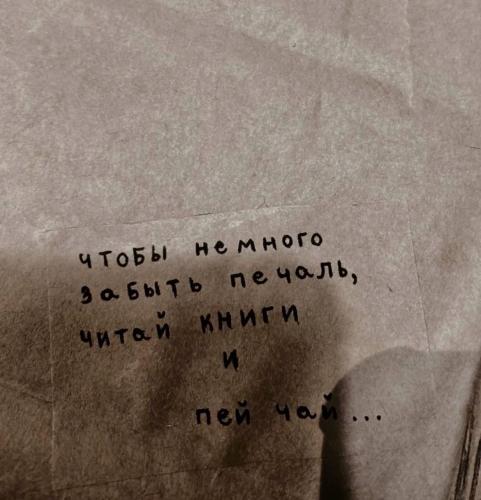 чтобы немного
забыть печаль,
читай книги
и
пей чай...